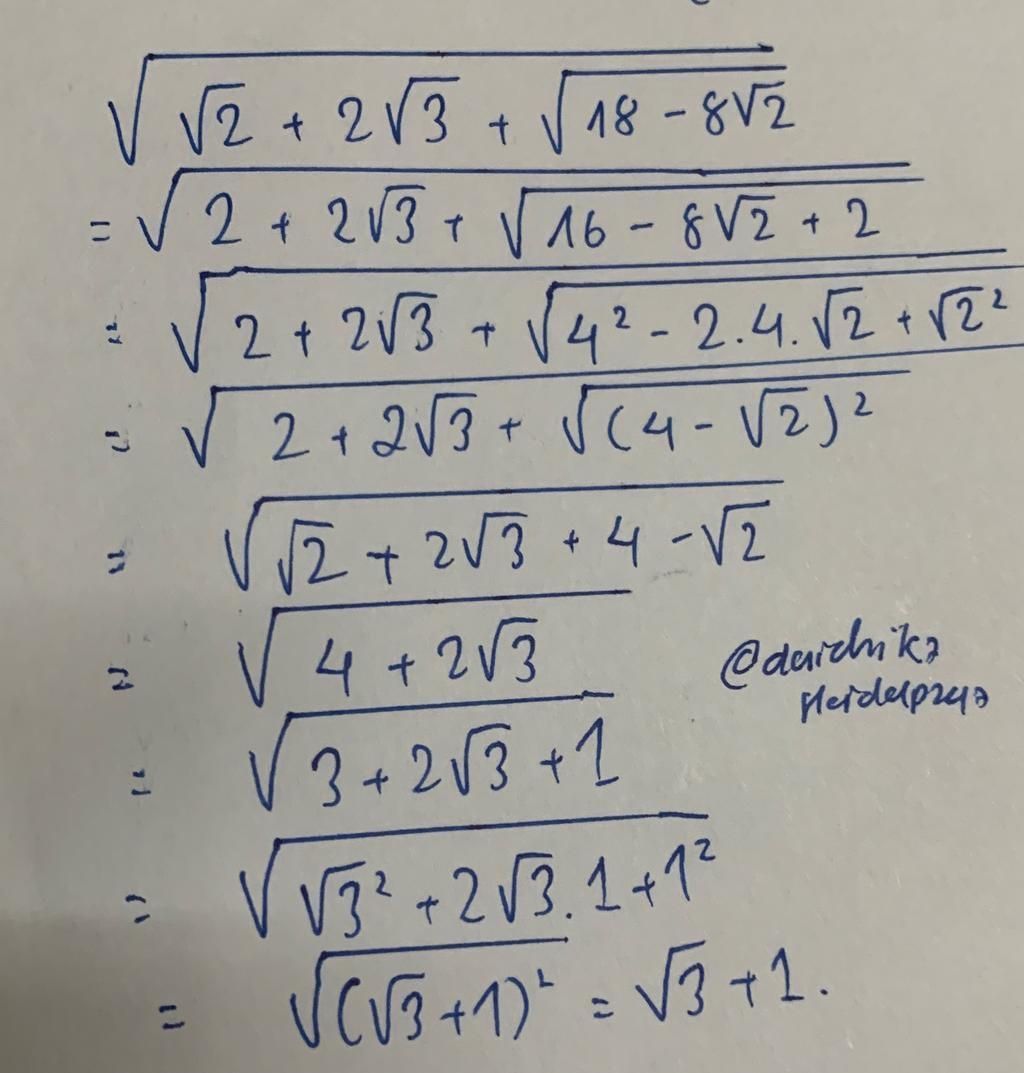 √(√2 + 2√3 + √(18 - 8√2))
= √(2 + 2√3 + √(16 - 8√2 + 2))
= √(2 + 2√3 + √(4² - 2.4.√2 + √2²))
= √(2 + 2√3 + √((4 - √2)²))
= √(√2 + 2√3 + 4 - √2)
= √(4 + 2√3)
= √(3 + 2√3 + 1)
= √(√3² + 2√3.1 + 1²)
= √((√3 + 1)²) = √3 + 1.